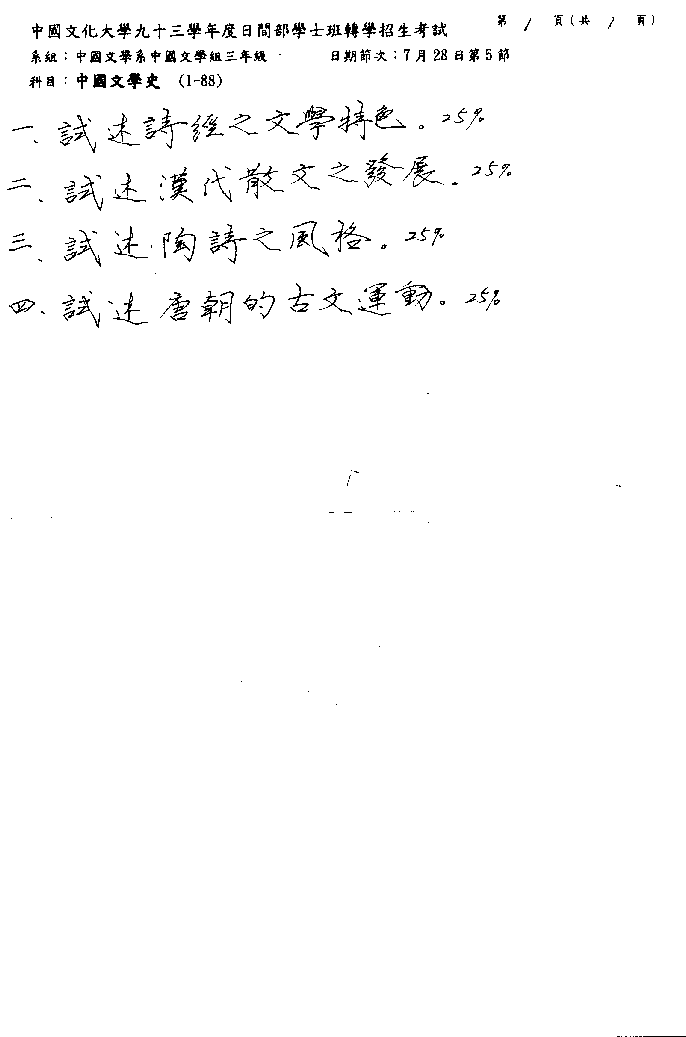 中國文化大學九十三學年度日間部學士班轉學招生考試 第 1 頁(共 1 頁)
系組：中國文學系中國文學組三年級 日期節次：7月28日第5節
科目：中國文學史 (1-88)
一、試述詩經之文學特色。25%
二、試述漢代散文之發展。25%
三、試述陶詩之風格。25%
四、試述唐朝的古文運動。25%